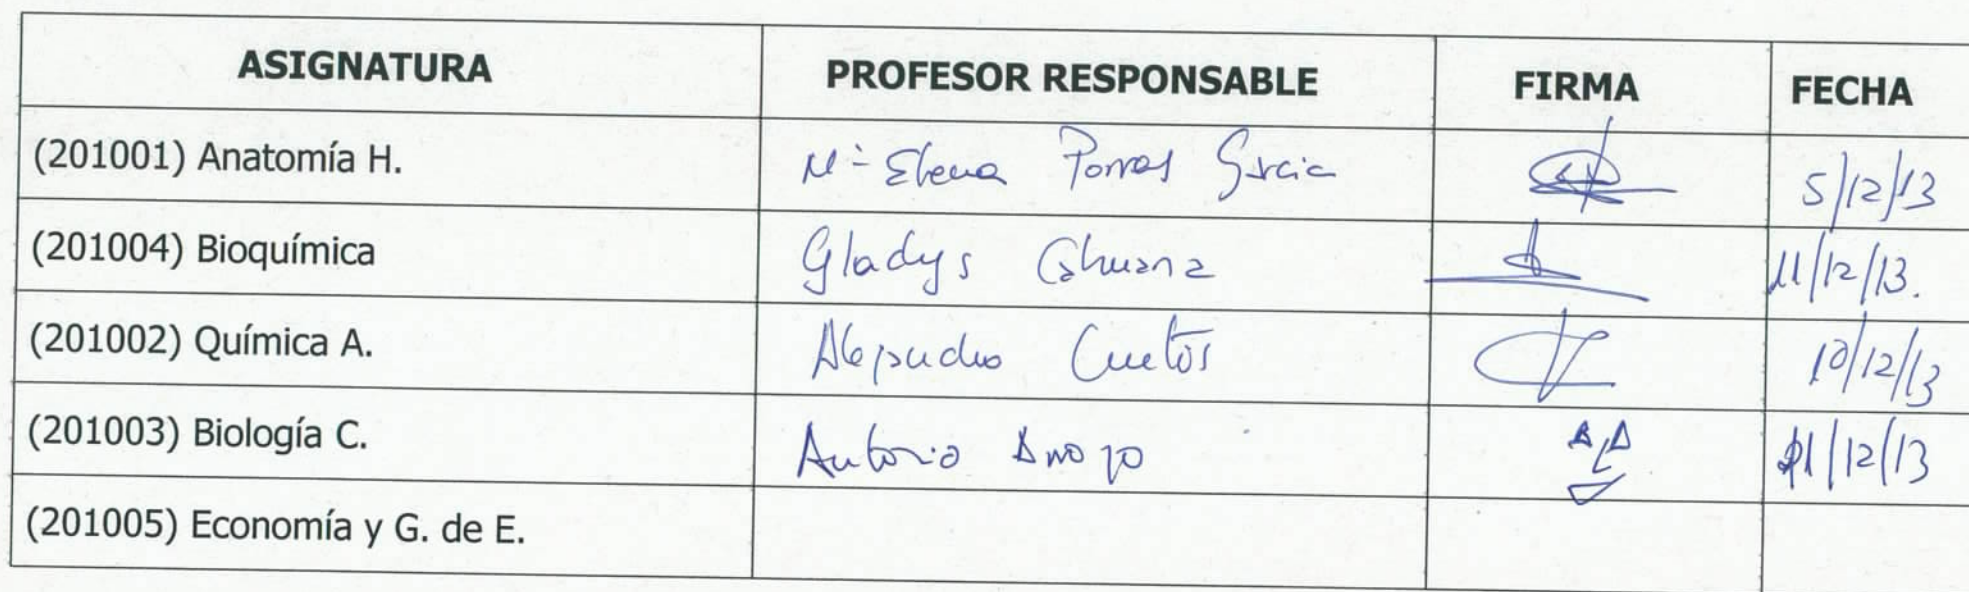 ASIGNATURA PROFESOR RESPONSABLE FIRMA FECHA
(201001) Anatomía H. Mª Elena Porras García 5/12/13
(201004) Bioquímica Gladys Cahuana 11/12/13.
(201002) Química A. Alejandro Cuetos 10/12/13
(201003) Biología C. Antonio 11/12/13
(201005) Economía y G. de E.